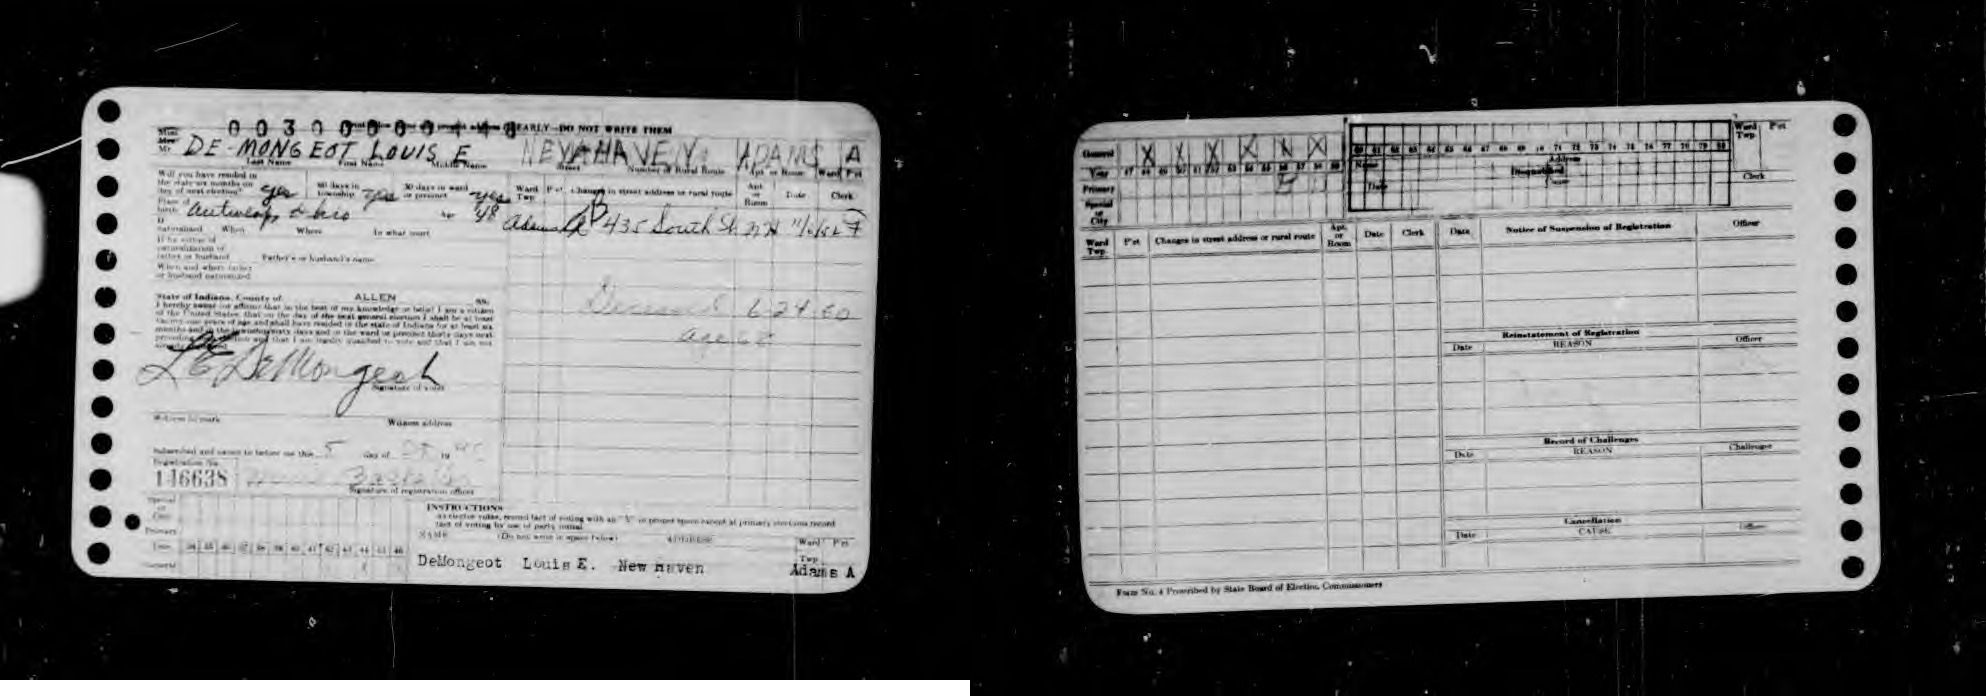 EARLY—DO NOT WRITE THEM
Miss
Mrs
Mr. DE-MONGEOT LOUIS E NEW HAVEN ADAMS A
Last Name First Name Middle Name Street Number or Rural Route Apt. or Room Ward Pct
Will you have resided in
the state six months on
day of next election? yes 60 days in township yes 30 days in ward or precinct yes
Ward Twp. Pct. Changes in street address or rural route Apt. or Room Date Clerk
Place of birth Antwerp Ohio Age 48
Adams B 435 South St. N H F
If naturalized When Where In what court
If by virtue of
naturalization of
father or husband Father's or husband's name
When and where father
or husband naturalized
State of Indiana, County of ALLEN ss.
I hereby swear (or affirm) that to the best of my knowledge or belief I am a citizen
of the United States, that on the day of the next general election I shall be at least
twenty-one years of age and shall have resided in the state of Indiana for at least six
months and in the township sixty days and in the ward or precinct thirty days next
preceding such election and that I am legally qualified to vote and that I am not
Deceased 6 24 60
age 62
L E DeMongeot
Signature of voter
Witness to mark Witness address
Subscribed and sworn to before me this 5 day of 19
Registration No.
146638
Signature of registration officer
Special or City
Primary
Year 34 35 36 37 38 39 40 41 42 43 44 45 46
General
INSTRUCTIONS
NAME (Do not write in space below) ADDRESS Ward Pct
Twp
DeMongeot Louis E. New Haven Adams A
General X X X X X X
Year 47 48 49 50 51 52 53 54 55 56 57 58 59
Primary
Special or City
60 61 62 63 64 65 66 67 68 69 70 71 72 73 74 75 76 77 78 79 80
Name Address
Date Disqualified
Ward Twp. Pct
Clerk
Ward Twp. Pct Changes in street address or rural route Apt. or Room Date Clerk
Date Notice of Suspension of Registration Officer
Reinstatement of Registration
Date REASON Officer
Record of Challenges
Date REASON Challenger
Cancellation
Date CAUSE Officer
Form No. 4 Prescribed by State Board of Election Commissioners